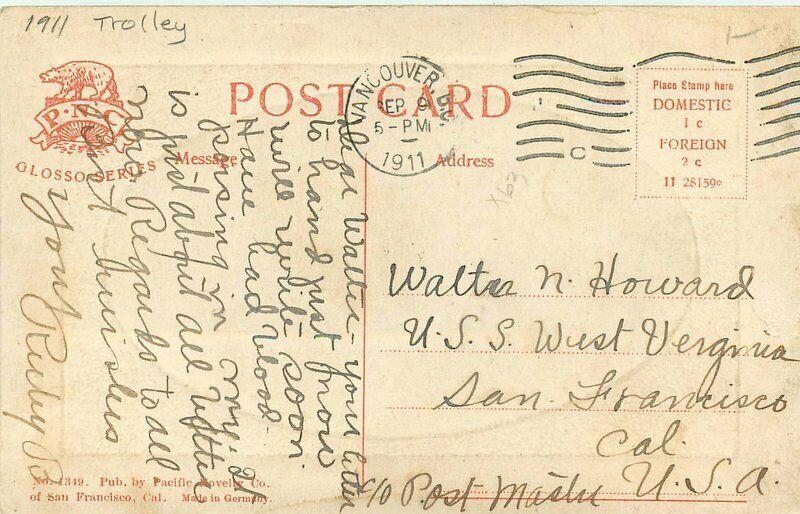 1911 Trolley
P.N.C.
GLOSSO SERIES
POST CARD
Message
Address
VANCOUVER, B.C.
SEP 9
5-PM
1911
C
Place Stamp here
DOMESTIC
1 c
FOREIGN
2 c
11 28159c
X63
Dear Walter - your letter
to hand just now
will write soon.
Have had blood
posing in
is just about all better
now. Regards to all
Aunt
yours Ruby B
Walter N. Howard
U.S.S. West Verginia
San. Francisco
Cal.
c/o Post Master U.S.A.
No. 4349. Pub. by Pacific Novelty Co.
of San Francisco, Cal. Made in Germany.